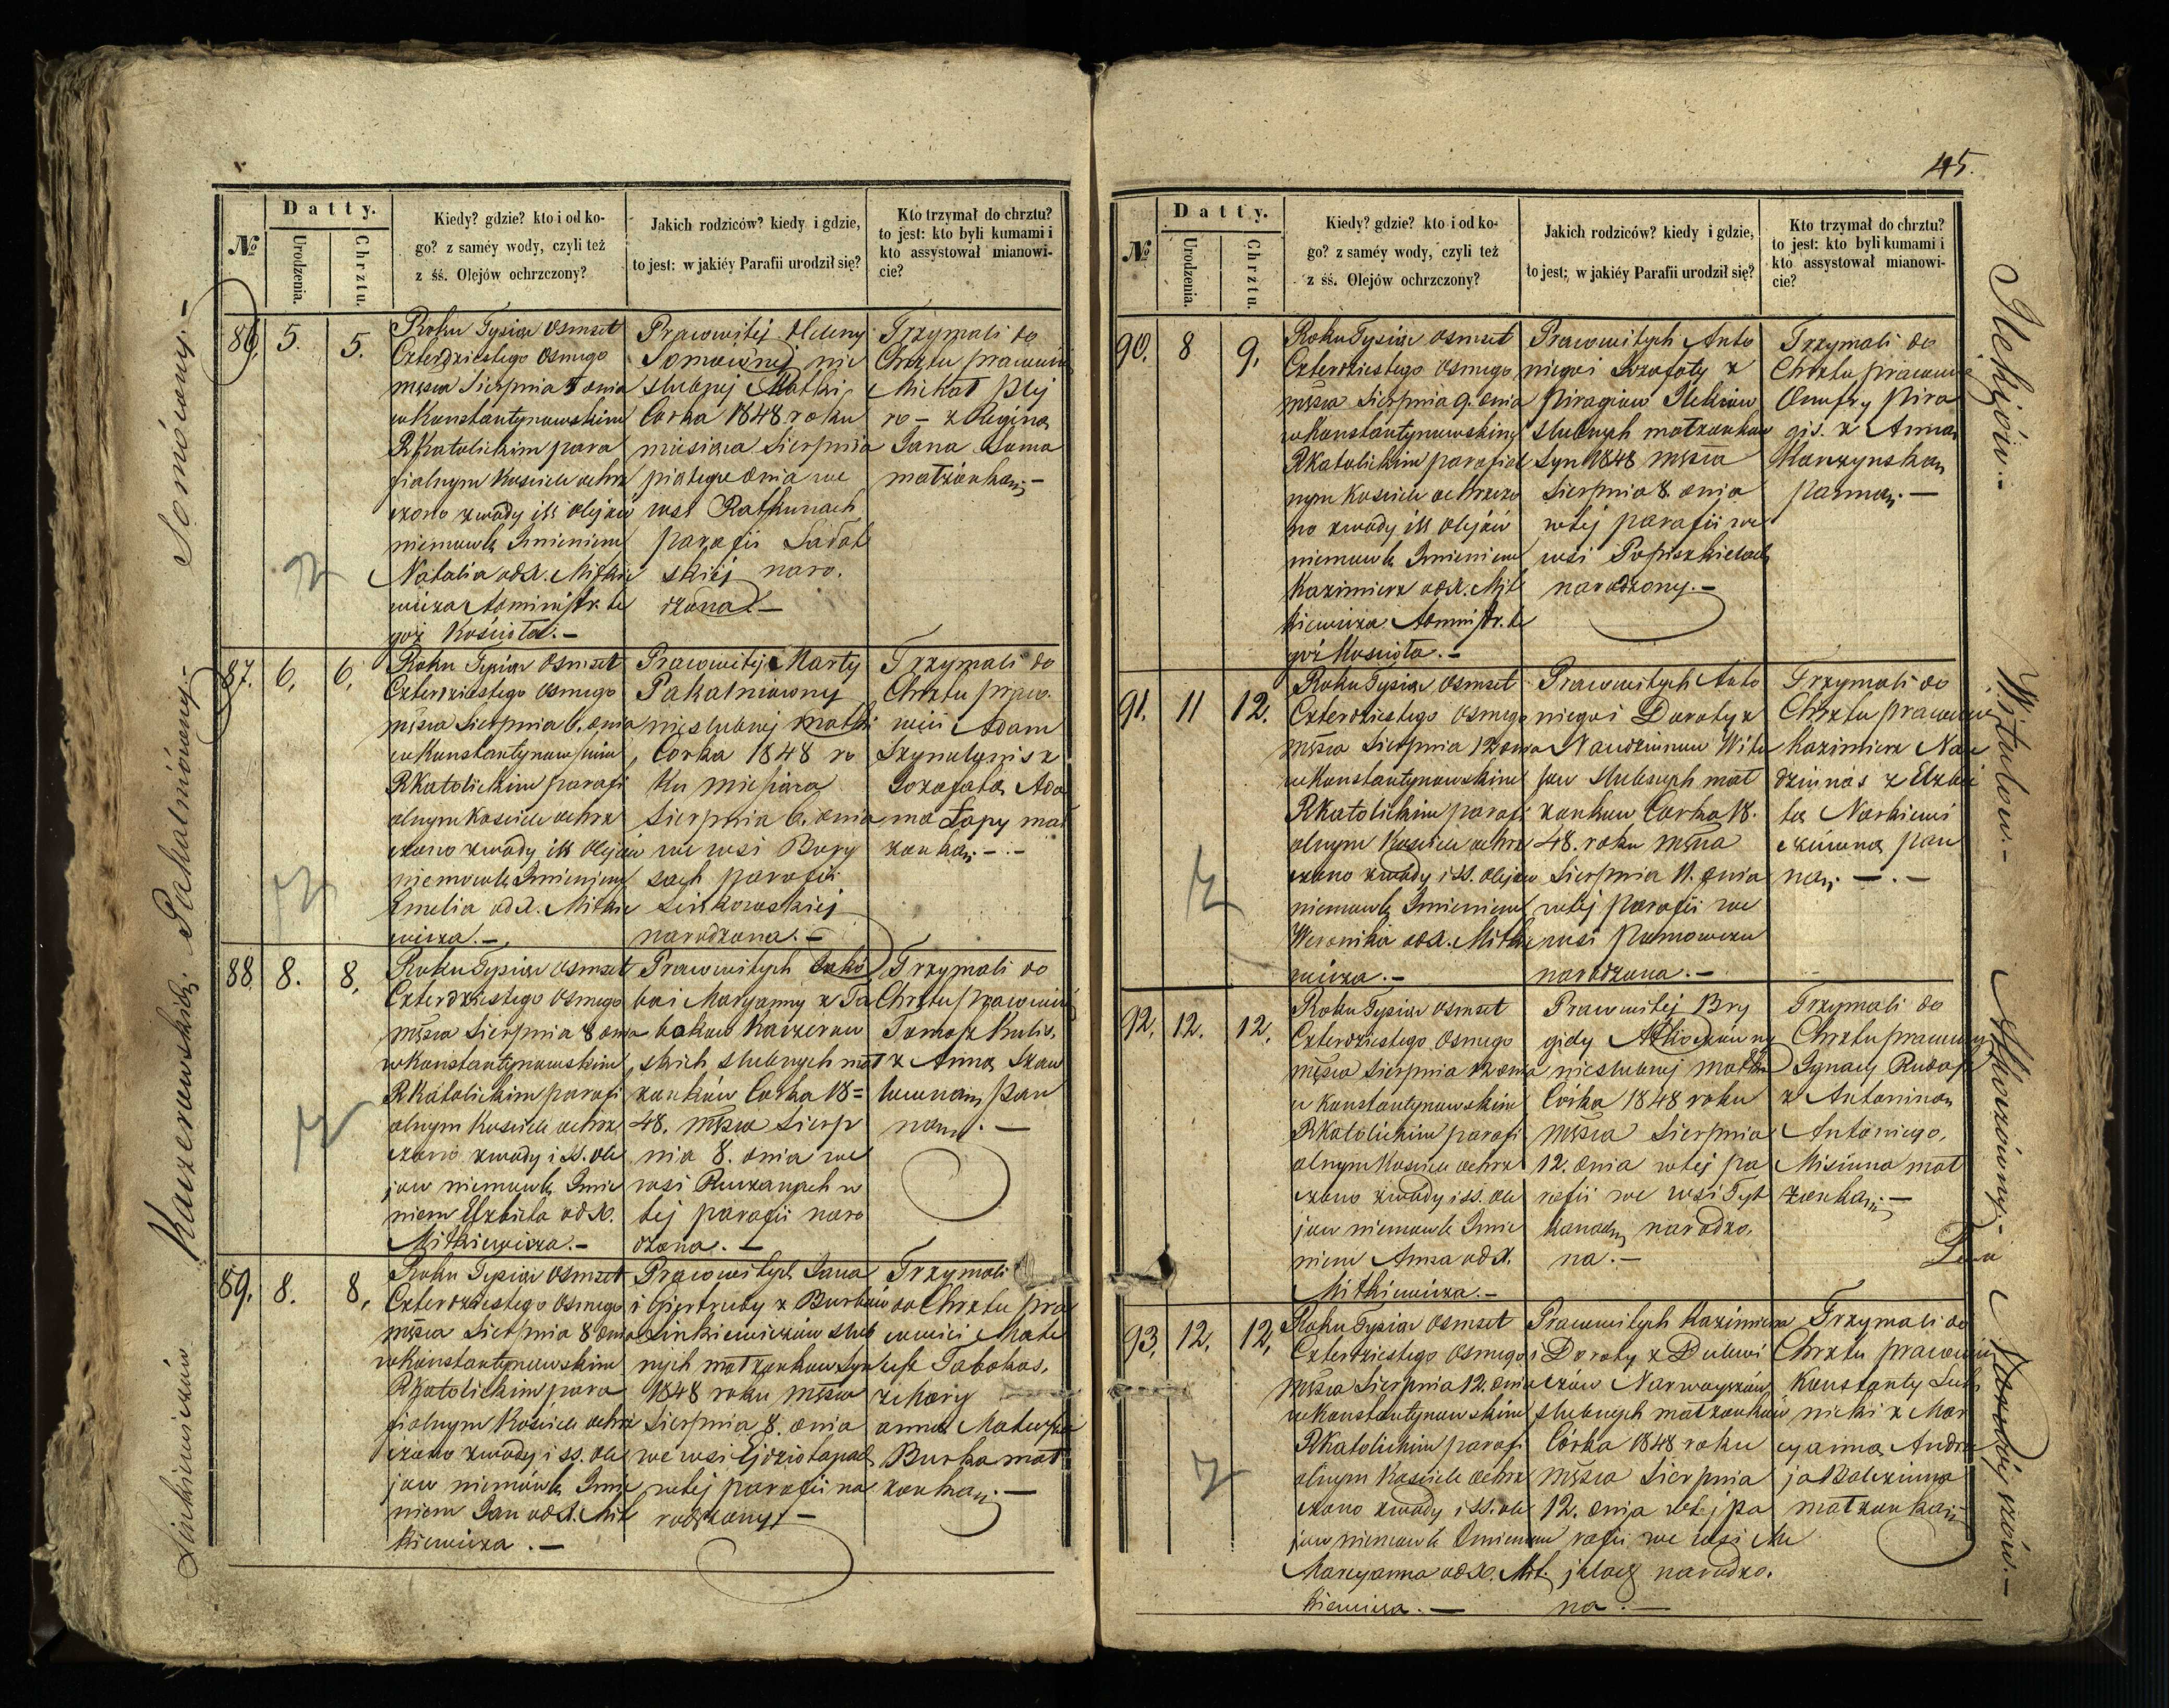 45.
Datty.
№
Urodzenia.
Chrztu.
Kiedy? gdzie? kto i od ko-
go? z saméy wody, czyli też
z śś. Olejów ochrzczony?
Jakich rodziców? kiedy i gdzie,
to jest: w jakiéy Parafii urodził się?
Kto trzymał do chrztu?
to jest: kto byli kumami i
kto assystował mianowi-
cie?
86. 5. 5.
Roku Tysiąc Osmset
Czterdziestego Osmego
mšca Sierpnia 5 dnia
w Konstantynowskim
RKatolickim para
fialnym Kościele ochrz
czono z wody i SS Olejów
niemowle Imieniem
Natalia od X. Mitkie
wicza Administr. te
goż Kościoła. –
Prawowitej Heleny
nie
slubnej Matki,
Corka 1848 roku
miesiaca Sierpnia
piątego dnia we
wsi Ratkunach
parafii
skiej naro.
dzona. –
Trzymali do
Chrztu prawowici
Michał
ro – z Reginą
Jana
małżonką. –
87. 6. 6.
Roku Tysiąc Osmset
Czterdziestego Osmego
mšca Sierpnia 6. dnia
w Konstantynowskim
RKatolickim parafi
alnym Kościele ochrz
czono z wody i SS Olejów
niemowle Imieniem
Emelia od X. Mitkie
wicza. –
Prawowitej Marty
Pakalniowny
nieslubnej matki
Corka 1848 ro
ku miesiąca
Sierpnia 6. dnia
we wsi Bury
sach parafii
narodzona. –
Trzymali do
Chrztu prawo.
wici Adam
z
Jozafatą Ada
ma Łapy mał
zonką. –
88. 8. 8.
Roku Tysiąc Osmset
Czterdziestego Osmego
mšca Sierpnia 8 dnia
w Konstantynowskim
RKatolickim parafi
alnym Kościele ochrz
czono z wody i SS. Ole
jow niemowle Imie
niem Elzbieta od X.
Mitkiewicza. –
Prawowitych Jakó
ba i Maryanny z Ta
bokow Kaczerow
skich slubnych mał
zonków Corka 18=
48. mšca Sierp
nia 8. dnia we
wsi Ruczanach w
tej parafii naro
dzona. –
Trzymali do
Chrztu prawowici
Tomasz Kulis.
z Anną Szaw
łowną pan
ną. –
89. 8. 8.
Roku Tysiąc Osmset
Czterdziestego Osmego
mšca Sierpnia 8 dnia
w Konstantynowskim
RKatolickim para
fialnym Kościele ochrz
czono z wody i SS. Ole
jow niemówle Imie
niem Jan od X. Mit
kiewicza. –
Prawowitych Jana
i Giertrudy z Burbów
Linkiewiczów slub
nych małzonkow Syn
1848 roku mšca
Sierpnia 8. dnia
we wsi
w tej parafii na
rodzony. –
Trzymali
do Chrztu pra
wowici Mate
usz Tabokas.
z Mary
anną Mateusza
Burba mał
zonką. –
Somówny. –
Pakalniówny. –
Kaczerowskich.
Linkiewiczów
90. 8 9.
Roku Tysiąc Osmset
Czterdziestego Osmego
mšca Sierpnia 9. dnia
w Konstantynowskim
RKatolickim parafial
nym Kościele ochrzczo
no z wody i SS Olejów
niemowle Imieniem
Kazimierz od X. Mit
kiewicza Administr. te
goż Kościoła. –
Prawowitych Anto
niego i Jozafaty z
Piragiow Ilekiow
slubnych małzonkow
Syn 1848 mšca
Sierpnia 8. dnia
w tej parafii we
wsi Popiszkielach
narodzony. –
Trzymali do
Chrztu prawowici
Onufry Pira
gis. z Anną
panną. –
91. 11 12.
Roku Tysiąc Osmset
Czterdziestego Osmego
mšca Sierpnia 12 dnia
w Konstantynowskim
RKatolickim parafi
alnym Kościele ochrz
czono z wody i SS. Olejow
niemowle Imieniem
Weronika od X. Mitkie
wicza. –
Prawowitych Anto
niego i Doroty z
Naudziunow Witu
low slubnych mał
zonkow Corka 18.
48. roku mšca
Sierpnia 11. dnia
w tej parafii we
wsi
narodzona. –
Trzymali do
Chrztu prawowici
Kazimierz Nau
dziunas z Elzbie
tą Narkiewi
czówną pan
ną. –
92. 12. 12.
Roku Tysiąc Osmset
Czterdziestego Osmego
mšca Sierpnia 12 dnia
w Konstantynowskim
RKatolickim parafi
alnym Kościele ochrz
czono z wody i SS. Ole
jow niemowle Imie
niem Anna od X.
Mitkiewicza. –
Prawowitej Bry
gidy
nieslubnej matki
Córka 1848 roku
mšca Sierpnia
12. dnia w tej pa
rafii we wsi Tyt
kanach narodzo.
na. –
Trzymali do
Chrztu prawowici
Ignacy
z Antoniną
Antoniego.
Misiuna mał
żonką. –
93. 12. 12.
Roku Tysiąc Osmset
Czterdziestego Osmego
mšca Sierpnia 12. dnia
w Konstantynowskim
RKatolickim parafi
alnym Kościele ochrz
czono z wody i SS. Ole
jow niemowle Imieniem
Maryanna od X. Mit.
kiewicza. –
Prawowitych Kazimierza
i Doroty z Dulewi
czów Narwoyszów
slubnych małzonkow
Córka 1848 roku
mšca Sierpnia
12. dnia w tej pa
rafii we wsi Me
jłach narodzo.
na. –
Trzymali do
Chrztu prawowici
Konstanty
z Mar
yanną Andrze
ja
małzonką. –
Ilekiów. –
Witulow. –